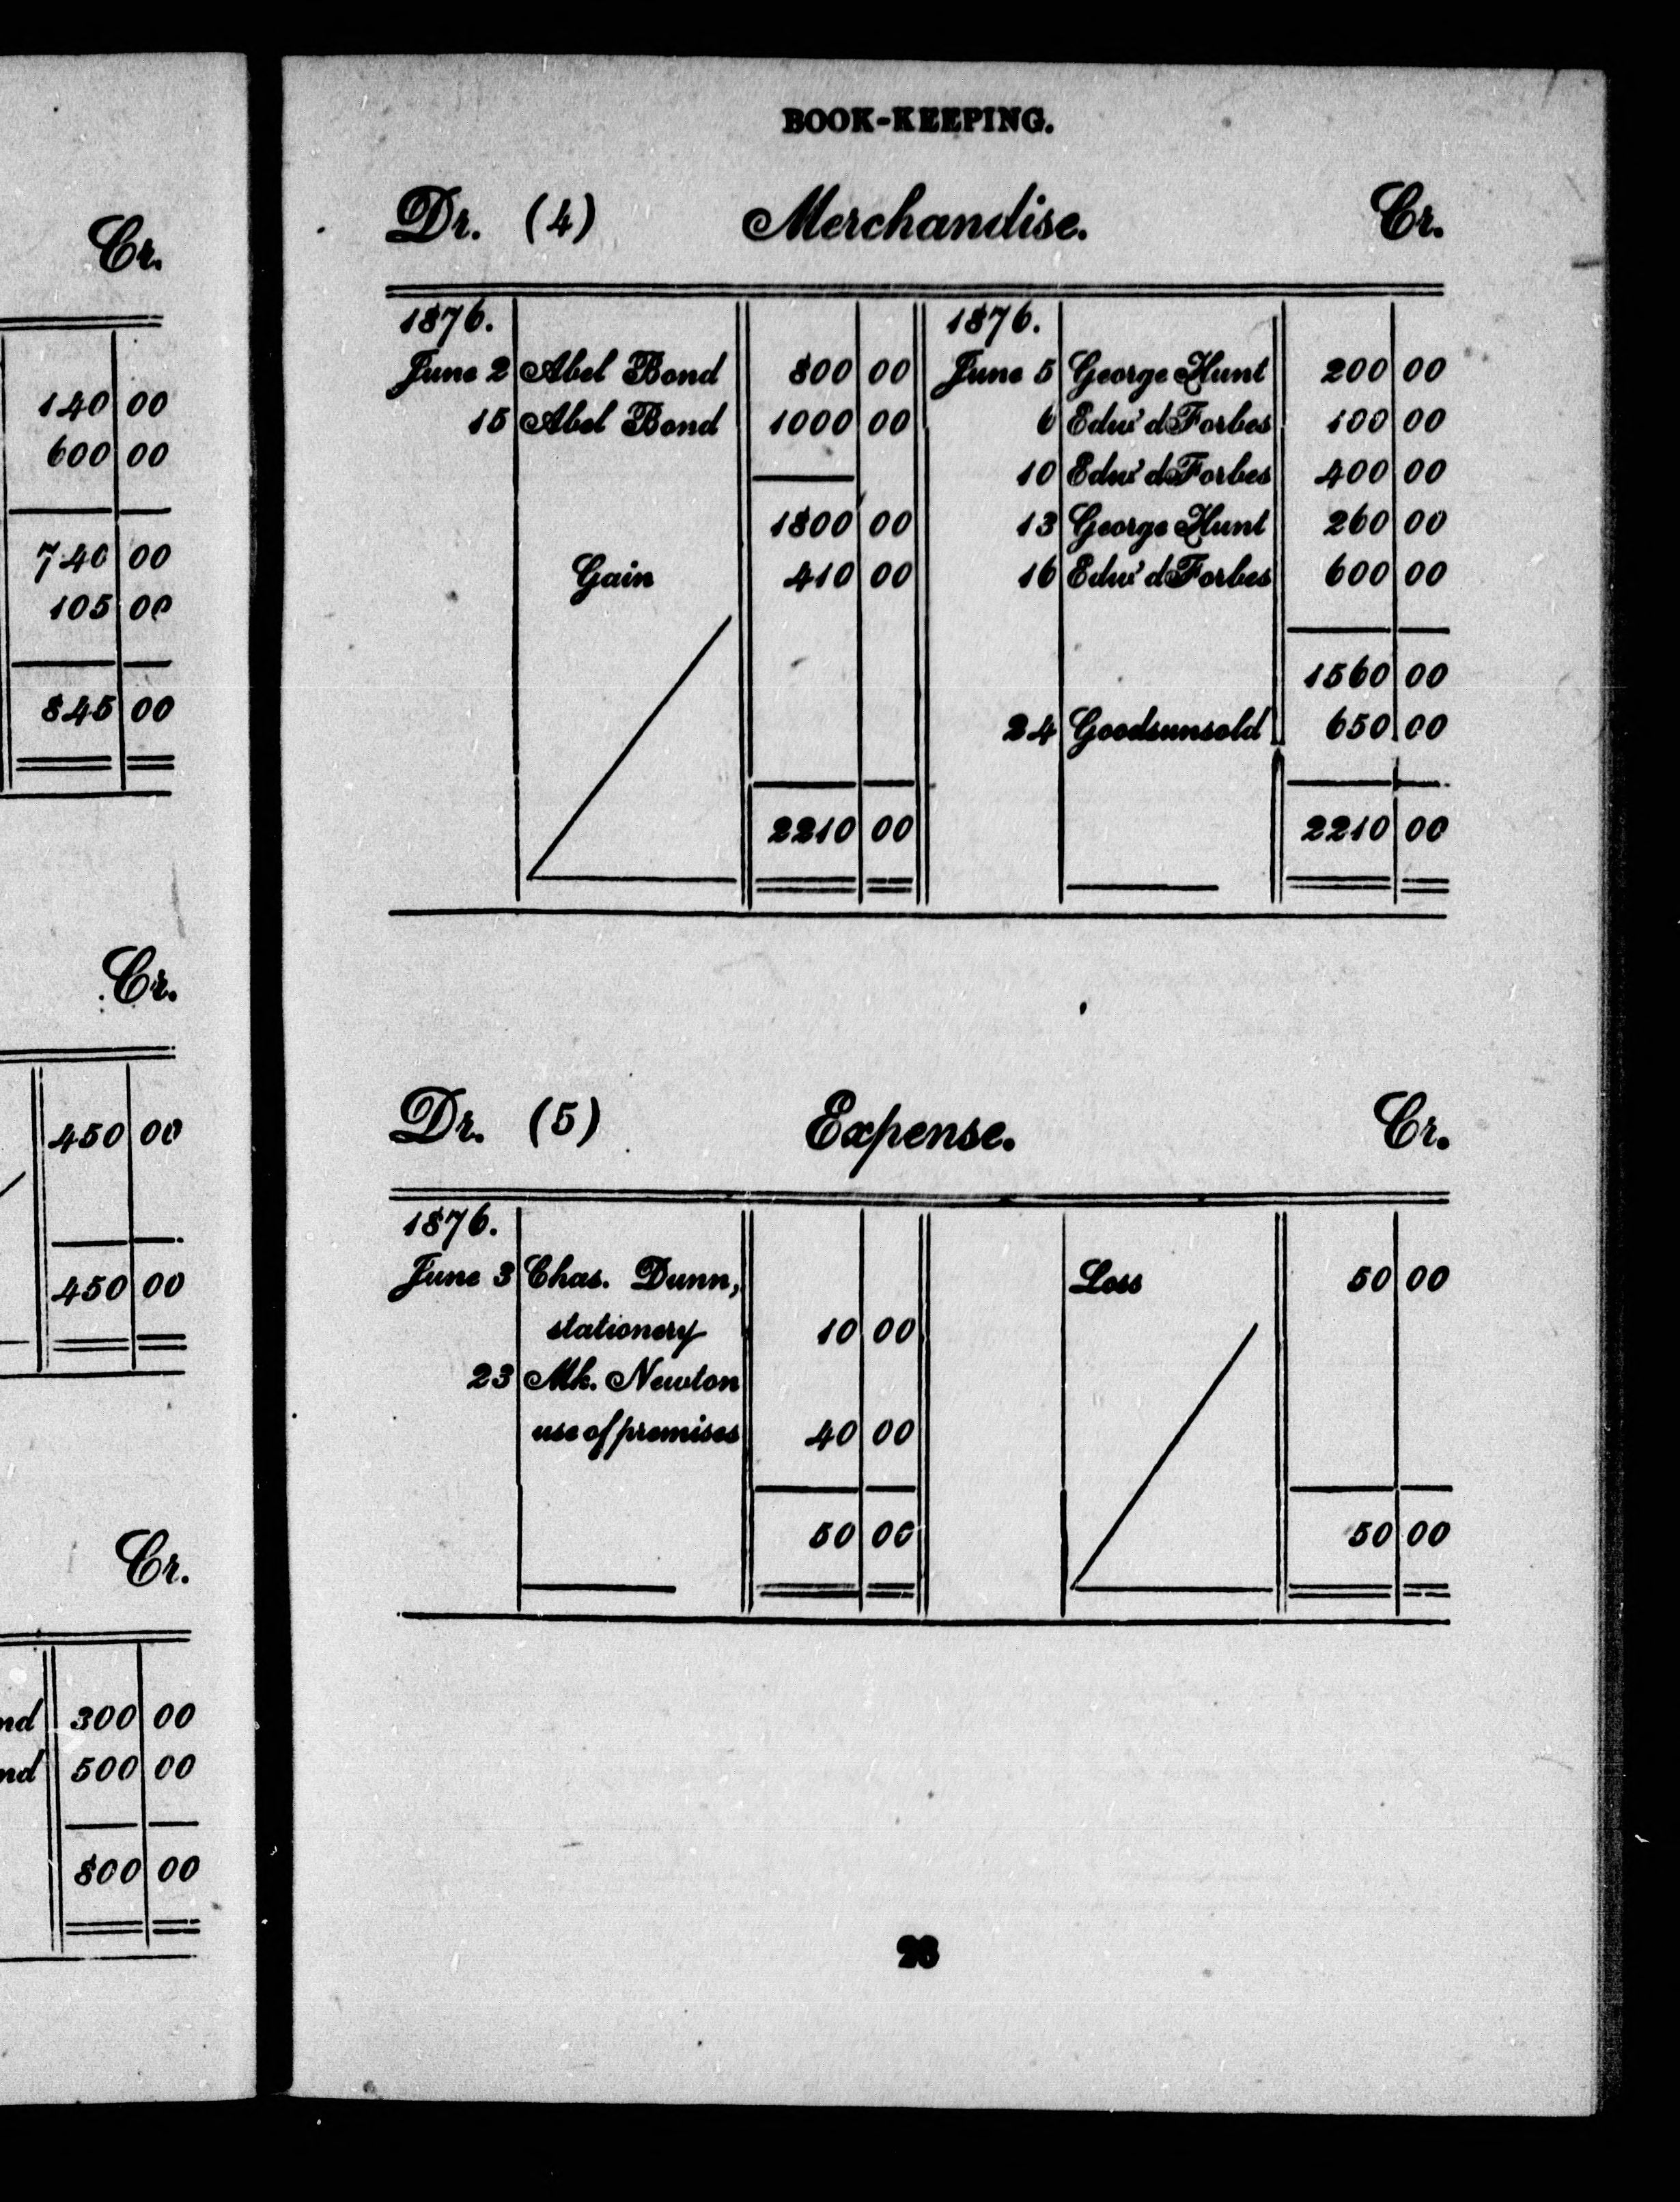 Cr.
140 00
600 00
740 00
105 00
845 00
Cr.
450 00
450 00
Cr.
nd 300 00
nd 500 00
800 00
BOOK-KEEPING.
Dr. (4) Merchandise. Cr.
1876. 1876.
June 2 Abel Bond 800 00 June 5 George Hunt 200 00
15 Abel Bond 1000 00 6 Edw'd Forbes 100 00
10 Edw'd Forbes 400 00
1800 00 13 George Hunt 260 00
Gain 410 00 16 Edw'd Forbes 600 00
1560 00
24 Goods unsold 650 00
2210 00 2210 00
Dr. (5) Expense. Cr.
1876.
June 3 Chas. Dunn, Loss 50 00
stationery 10 00
23 Mk. Newton
use of premises 40 00
50 00 50 00